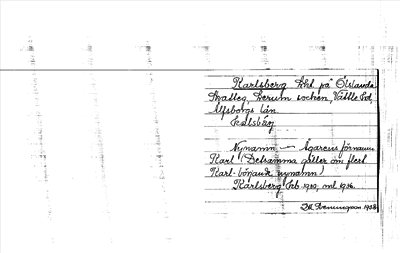 Karlsberg lht på Ölslanda
Skatteg, Lerum socken, Vättle hd,
Älfsborgs län.
Kalsbärj
Nynamn — Ägarens förnamn
Karl (Detsamma gäller om flert
Karl-börjande nynamn)
Karlsberg Jrb 1910, ml 1936.
1938